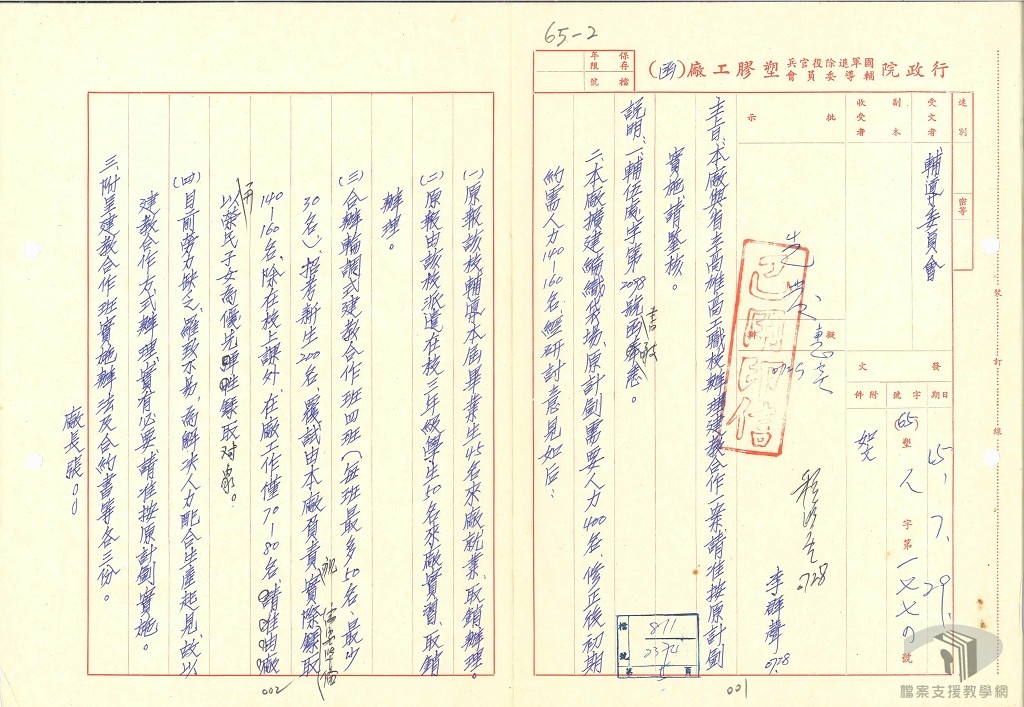 65-2
行政院國軍退除役官兵輔導委員會塑膠工廠(函)
保存年限
檔號
速別
密等
受文者
輔導委員會
副本收受者
批示
擬辦
發文
日期
65.7.29.
字號
(65)塑人字第一七七〇號
附件
如文
已用印信
0728
李群聲
0728
主旨:本廠與省立高雄高工職校辦理建教合作一案,請准按原計劃
實施,請鑒核。
說明:一、輔伍處字第2098號函敬悉。
二、本廠擴建編織袋場,原計劃需要人力400名,修正後初期
約需人力140-160名,經研討意見如后:
檔號
811
第 頁
001
(一)原報該校輔導本屆畢業生45名來廠就業,取銷辦理。
(二)原報由該校派遣在校三年級學生50名來廠實習,取銷
辦理。
(三)合辦輪調式建教合作班四班(每班最多50名,最少
30名),招考新生200名,覆試由本廠負責,實際錄取
140-160名,除在校上課外,在廠工作僅70-80名,請准由廠
以榮民子女為優先錄取对象。
(四)目前勞力缺乏,羅致不易,為解決人力配合生產起見,故以
建教合作方式辦理,實有必要,請准按原計劃實施。
三、附呈建教合作班實施辦法及合約書等各三份。
廠長張
002
檔案支援教學網